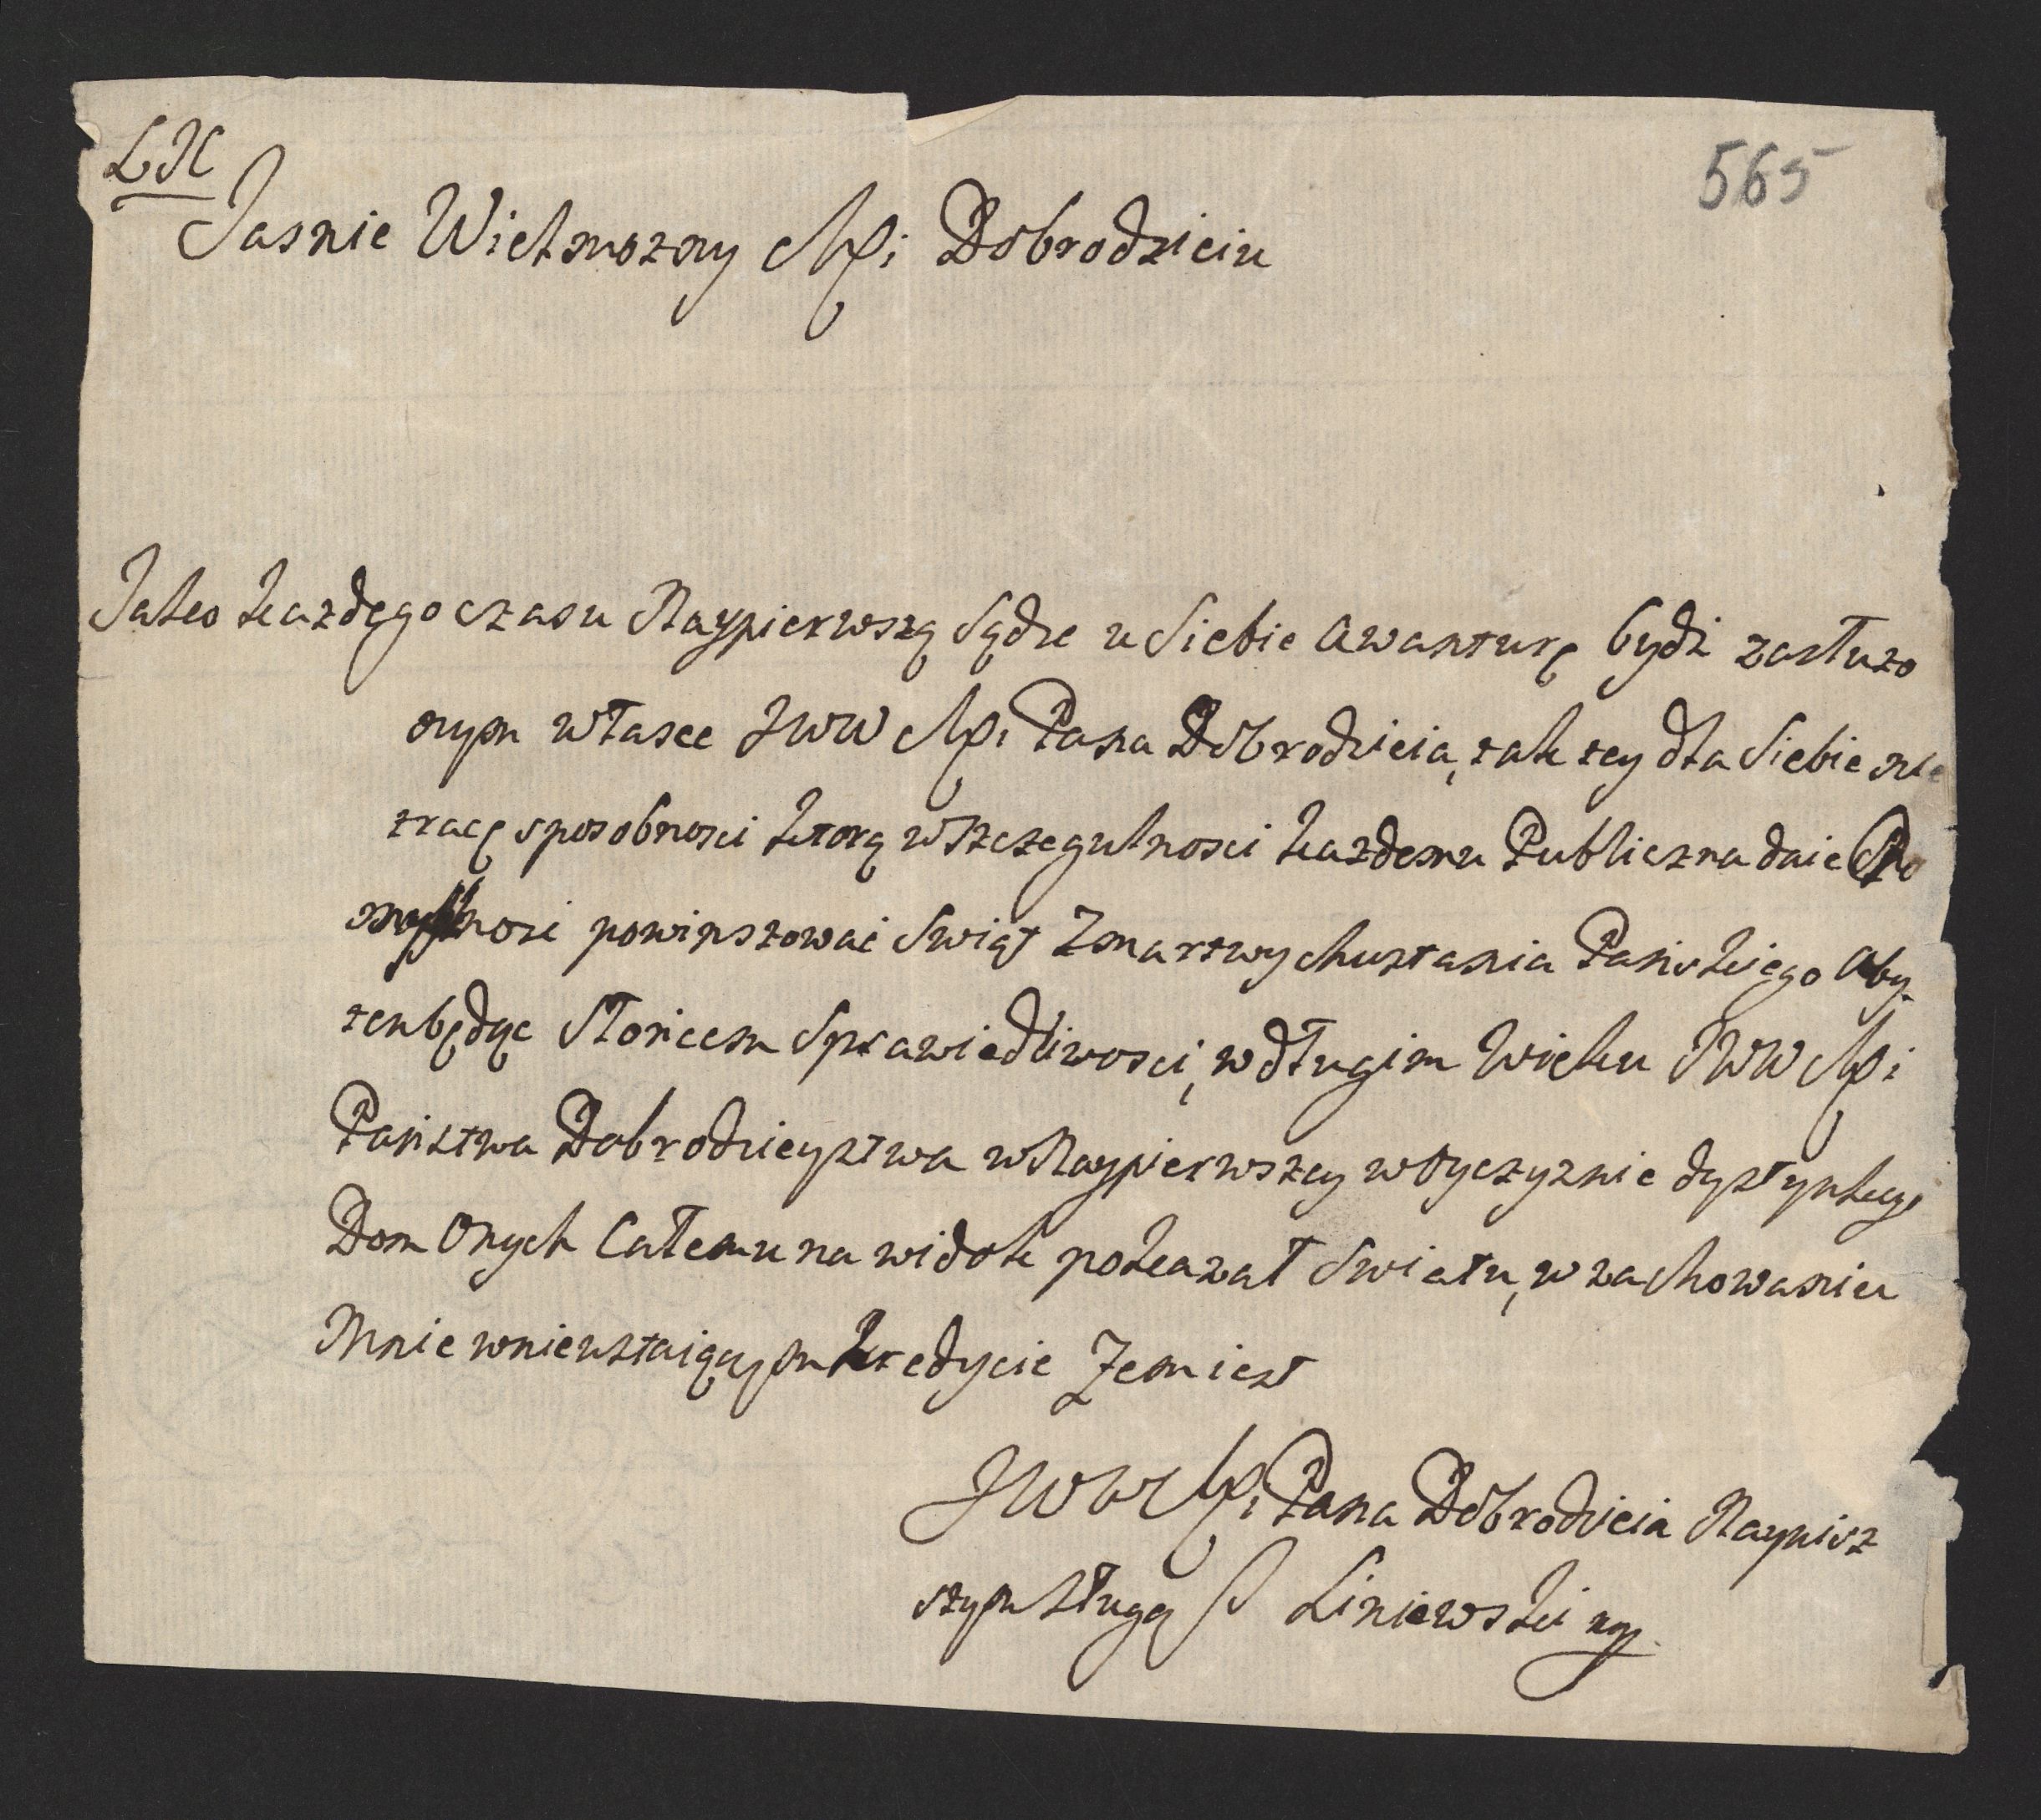 LK
565
Jasnie Wielmozny Mƥi Dobrodzieiu
Jako kazdęgo czasu Naypierwszą sądze u siebie awanturę bydź zasłuzo
nym w łasce JWW Mƥi Pana Dobrodzieia, tak tey dla siebie nie
tracę sposobnosci ktorą wszczegulnosci kazdemu Publiczna daie Po
ność powinszowac swiąt Zmartwychustania Pańskiego Aby
ten będąc Słońcem Sprawiedliwosci, w długim Wieku JWW Mƥi
Państwa Dobrodzieystwa w Naypierwszey w Oyczyznie dystynkcyi
Dom Onych Całemu na widok pokazał swiatu, w zachowaniu
Mnie w nieustaiącym kredycie Zemiest
JWW Mƥi Pana Dobrodzieia Naynisz
szym sługą Liniewski